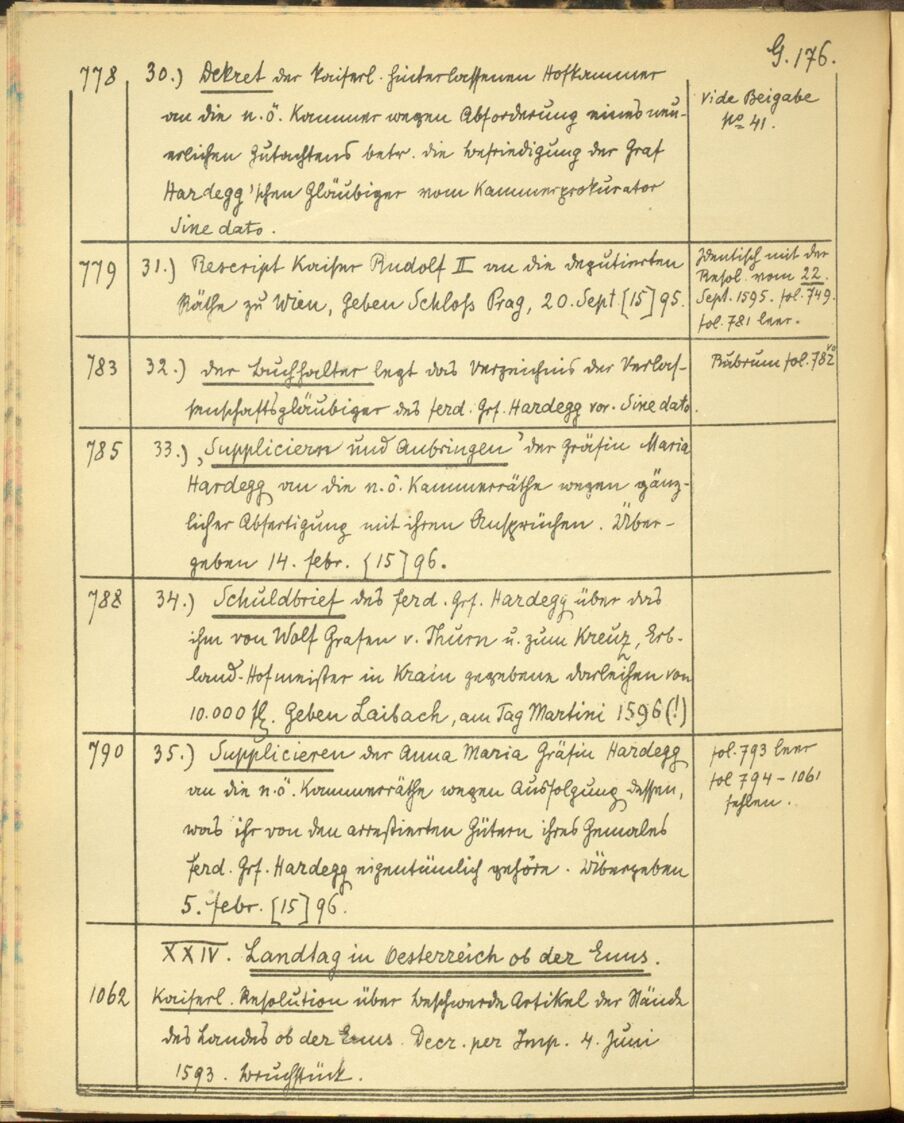 G. 176.
778 30.) Dekret der kaiserl. hinterlassenen Hofkammer
an die n.ö. Kammer wegen Abforderung eines neu-
erlichen Gutachtens betr. die Befriedigung der Graf
Hardegg'schen Gläubiger vom Kammerprokurator
Sine dato.
Vide Beigabe
No 41.
779 31.) Rescript Kaiser Rudolf II an die deputierten
Räthe zu Wien, Geben Schloß Prag, 20. Sept [15]95.
Identisch mit der
Resol. vom 22.
Sept. 1595. fol. 749.
fol. 781 leer.
783 32.) der Buchhalter legt das Verzeichnis der Verlas-
senschaftsgläubiger des ferd. Grf. Hardegg vor. Sine dato.
Rubrum fol. 782 vo
785 33.) „Suppliciern und Anbringen" der Gräfin Maria
Hardegg an die n.ö. Kammerräthe wegen gänz-
licher Abfertigung mit ihren Ansprüchen. Über-
geben 14. febr. [15]96.
788 34.) Schuldbrief des ferd. Grf. Hardegg über das
ihm von Wolf Grafen v. Thurn u. zum Kreuz, Erb-
land-Hofmeister in Krain gegebene Darleihen von
10.000 fl. Geben Laibach, am Tag Martini 1596(!)
790 35.) Supplicieren der Anna Maria Gräfin Hardegg
an die n.ö. Kammerräthe wegen Ausfolgung dessen,
was ihr von den arrestierten Gütern ihres Gemales
ferd. Grf. Hardegg eigentümlich gehöre. Übergeben
5. febr. [15]96.
fol. 793 leer
fol 794 - 1061
fehlen.
XXIV. Landtag in Oesterreich ob der Enns.
1062 Kaiserl. Resolution über Beschwerde Artikel der Stände
des Landes ob der Enns. Decr. per Imp. 4. Juni
1593. Bruchstück.